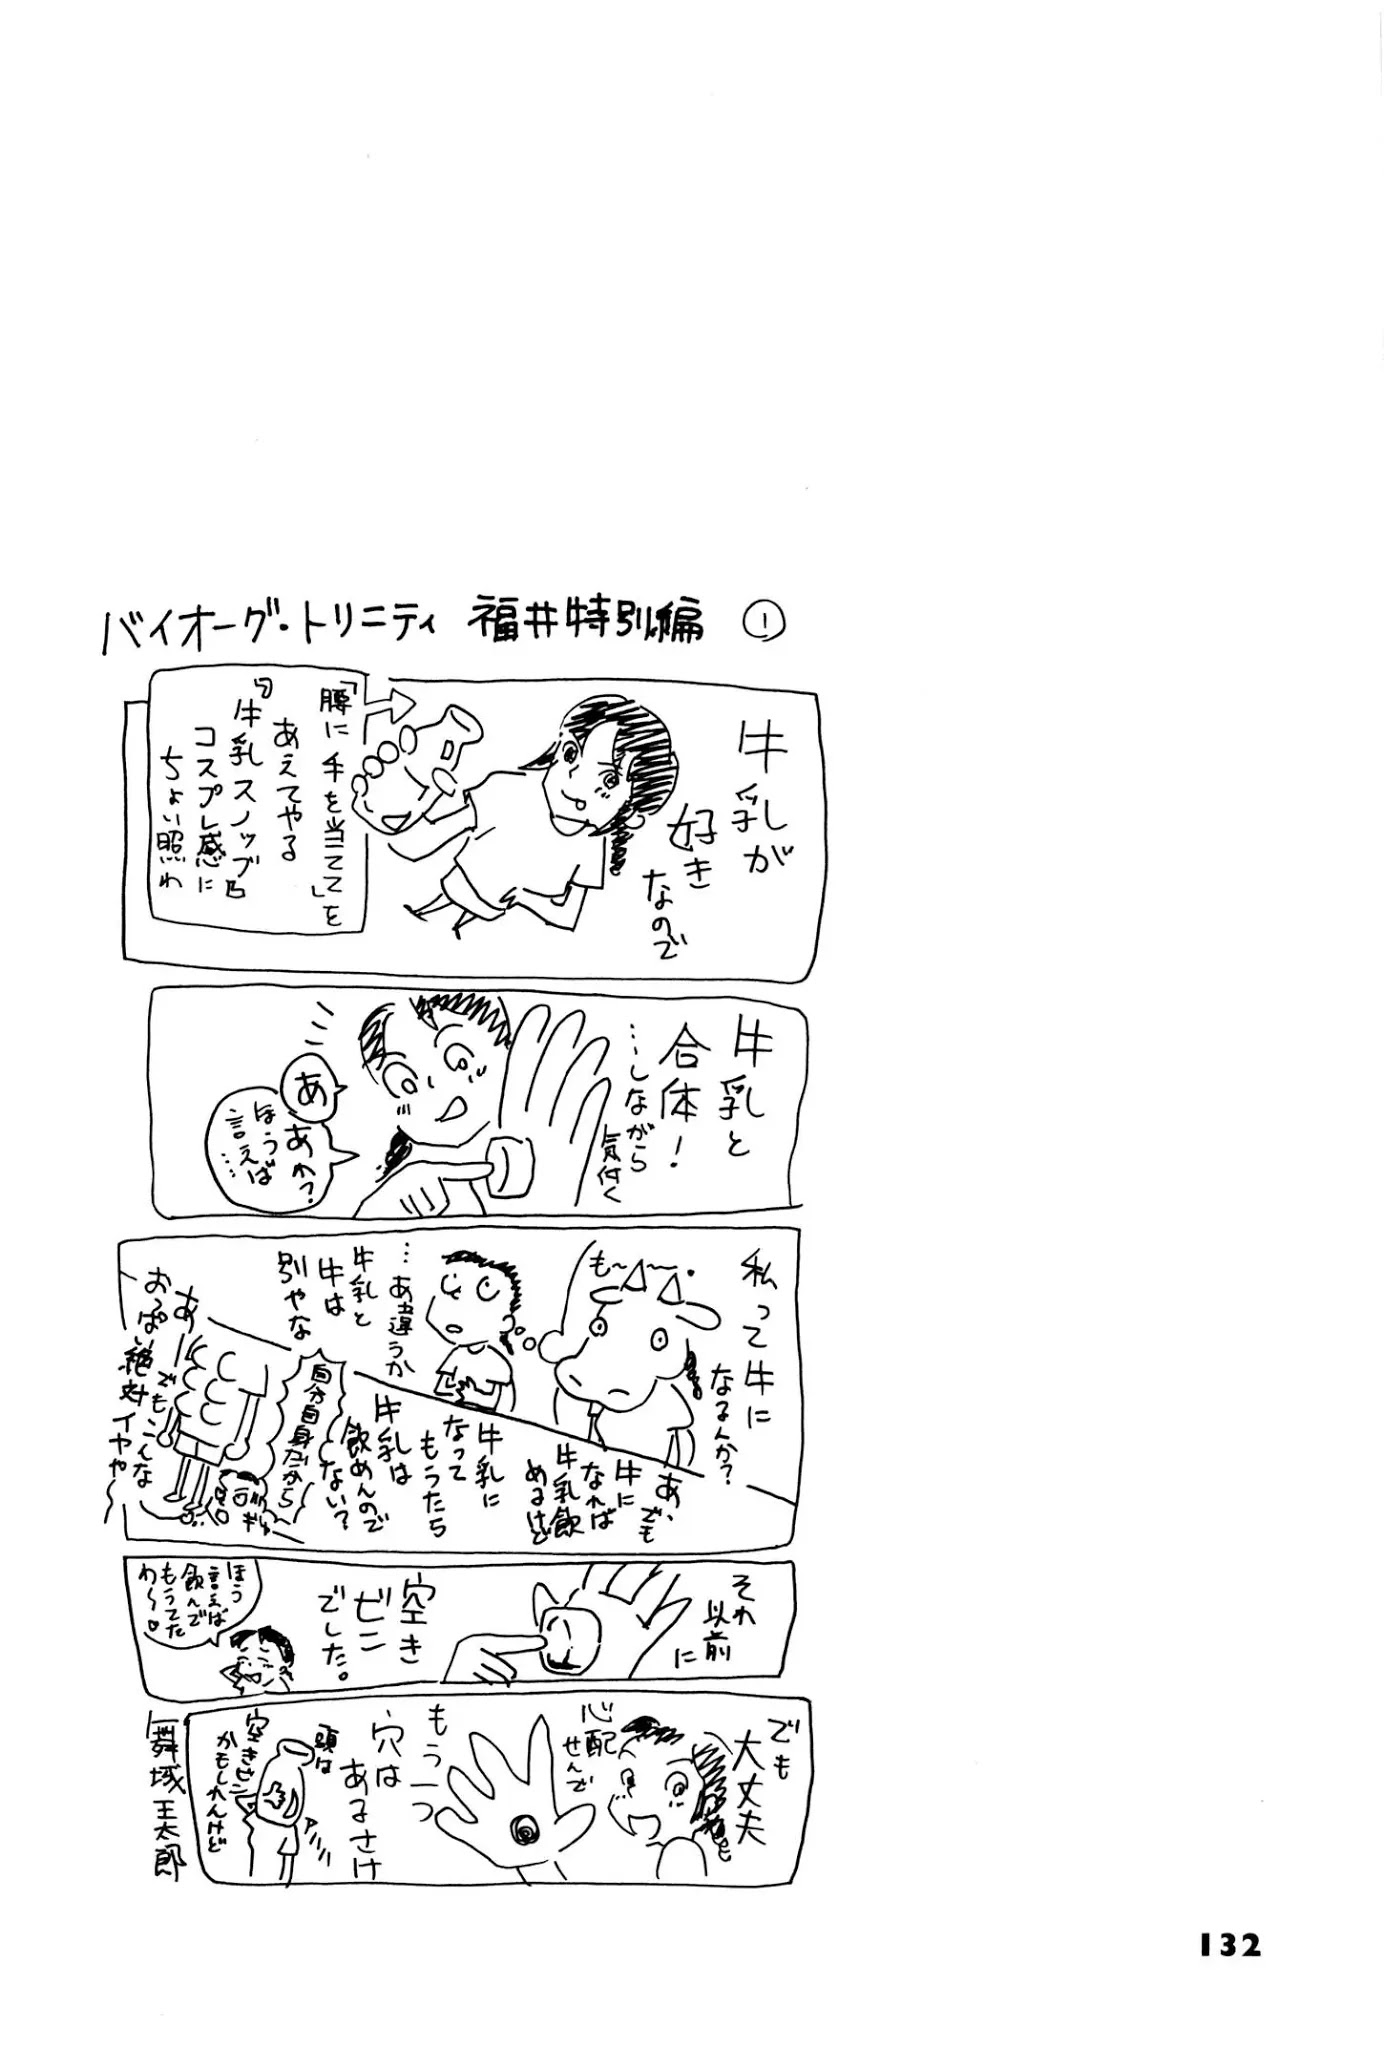 バイオーグ・トリニティ 福井特別編 ①
牛乳が
好き
なので
「腰に手を当てて」を
あえてやる
『牛乳スノッブ』
コスプレ感に
ちょい照れ
牛乳と
合体!
…しながら
気付く
あ
あれ?
ほうば
言えば…
私って牛に
なるんか?
も〜〜・
…あ違うか
牛乳と
牛は
別やな
あ、でも
牛に
なれば
牛乳飲
めるけど
牛乳に
なって
もうたら
牛乳は
飲めんので
ない?
自分自身だから
あ
でもこんな
おっぱい絶対イヤや〜
それ
以前
に
空き
ビン
でした。
ほう
言えば
飲んで
もうてた
わ〜♡
でも
大丈夫
心配
せんで
もう一つ
穴は
あるさけ
頭は
空きビン
かもしれんけど
舞城王太郎
132